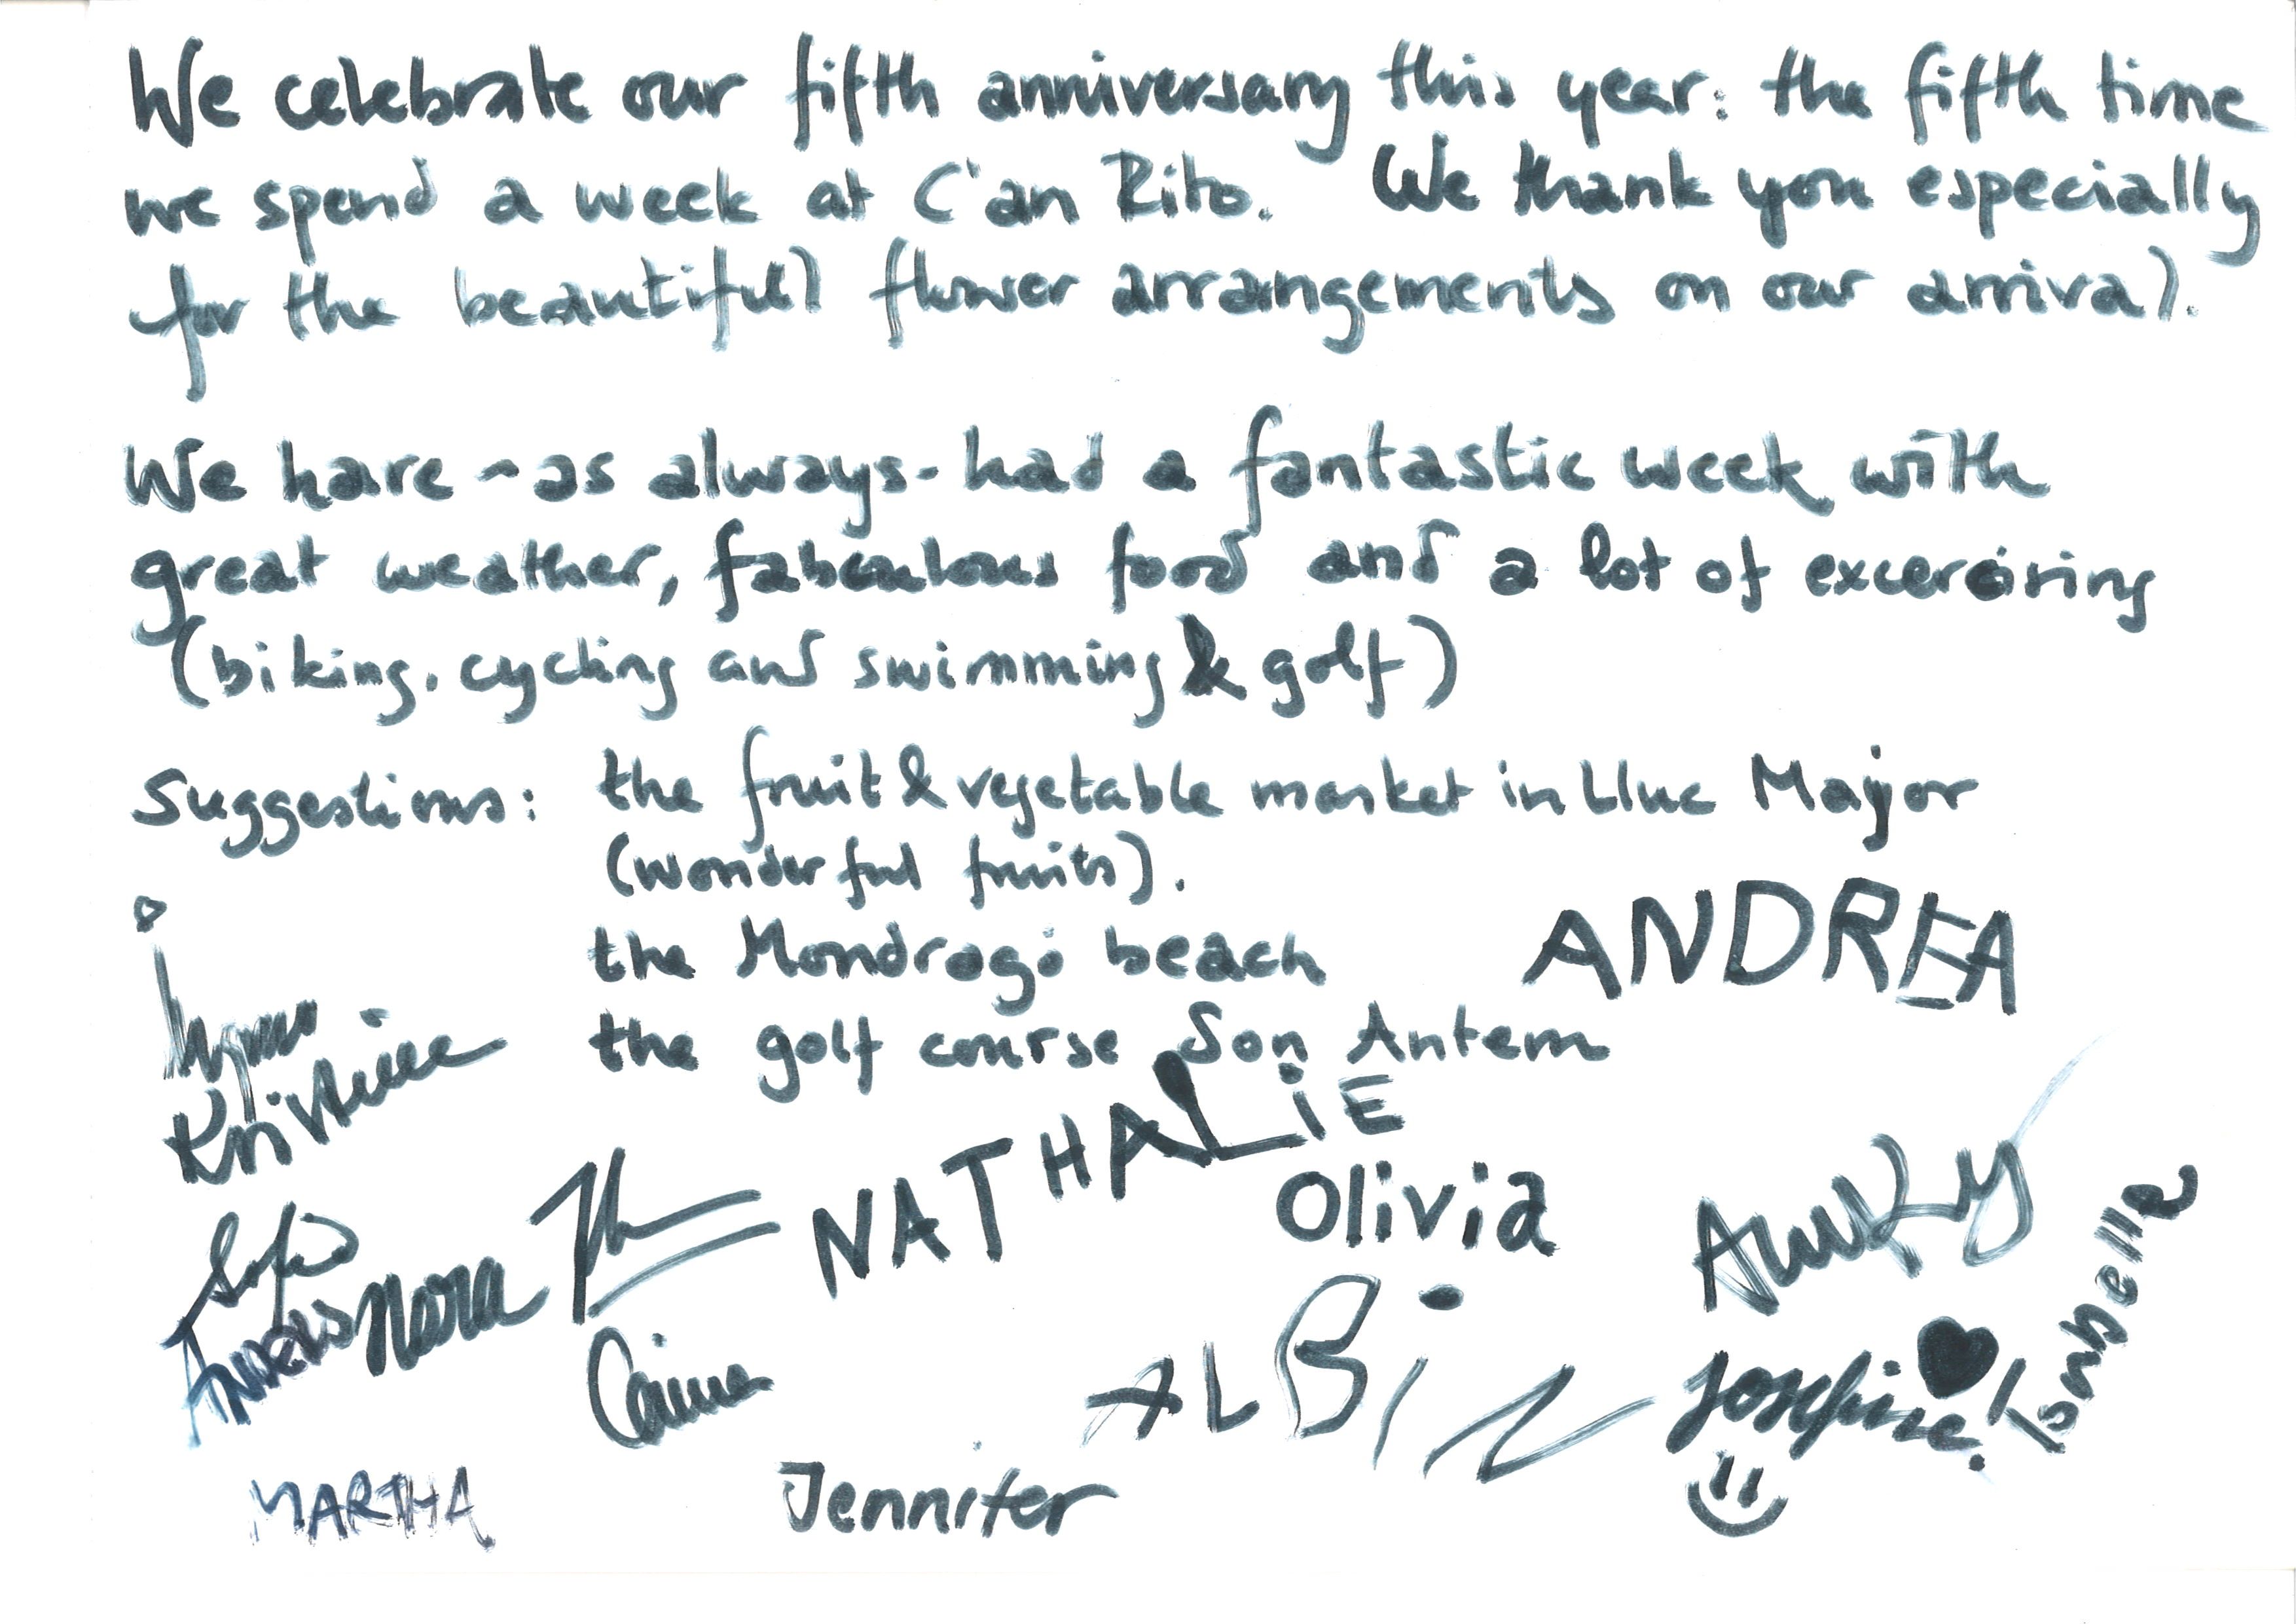 We celebrate our fifth anniversary this year: the fifth time
we spend a week at C'an Rito. We thank you especially
for the beautiful flower arrangements on our arrival.
We have - as always - had a fantastic week with
great weather, fabeulous food and a lot of excercising
(biking, cycling and swimming & golf)
Suggestions: the fruit & vegetable market in Lluc Majyor
(wonderful fruits).
the Mondragó beach
ANDREA
the golf course Son Antem
Kristine
NATHALiE
Olivia
Sofie
Nora
Anders
ALBiN
Josefine!
Isabella
MARTHA
Jennifer